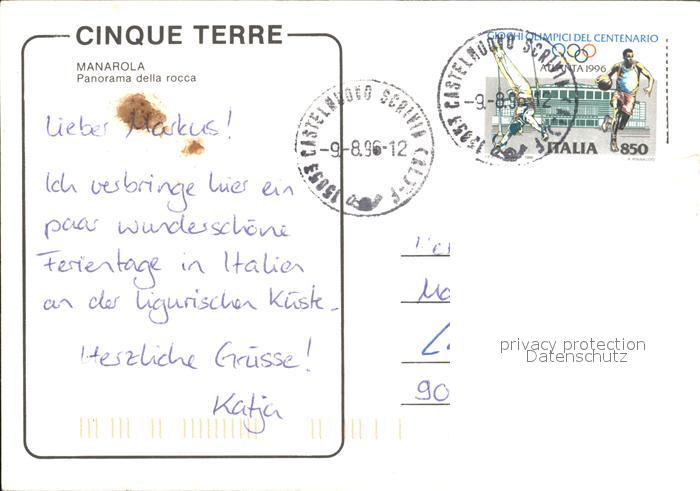 CINQUE TERRE
MANAROLA
Panorama della rocca
Lieber Markus!
Ich verbringe hier ein
paar wunderschöne
Ferientage in Italien
an der ligurischen Küste.
Herzliche Grüsse!
Katja
15053 CASTELNUOVO SCRIVIA (AL)-F
-9-8.96-12
15053 CASTELNUOVO SCRIVIA
-9-8.96-12
GIOCHI OLIMPICI DEL CENTENARIO
ATLANTA 1996
ITALIA 850
Ma
90
privacy protection
Datenschutz